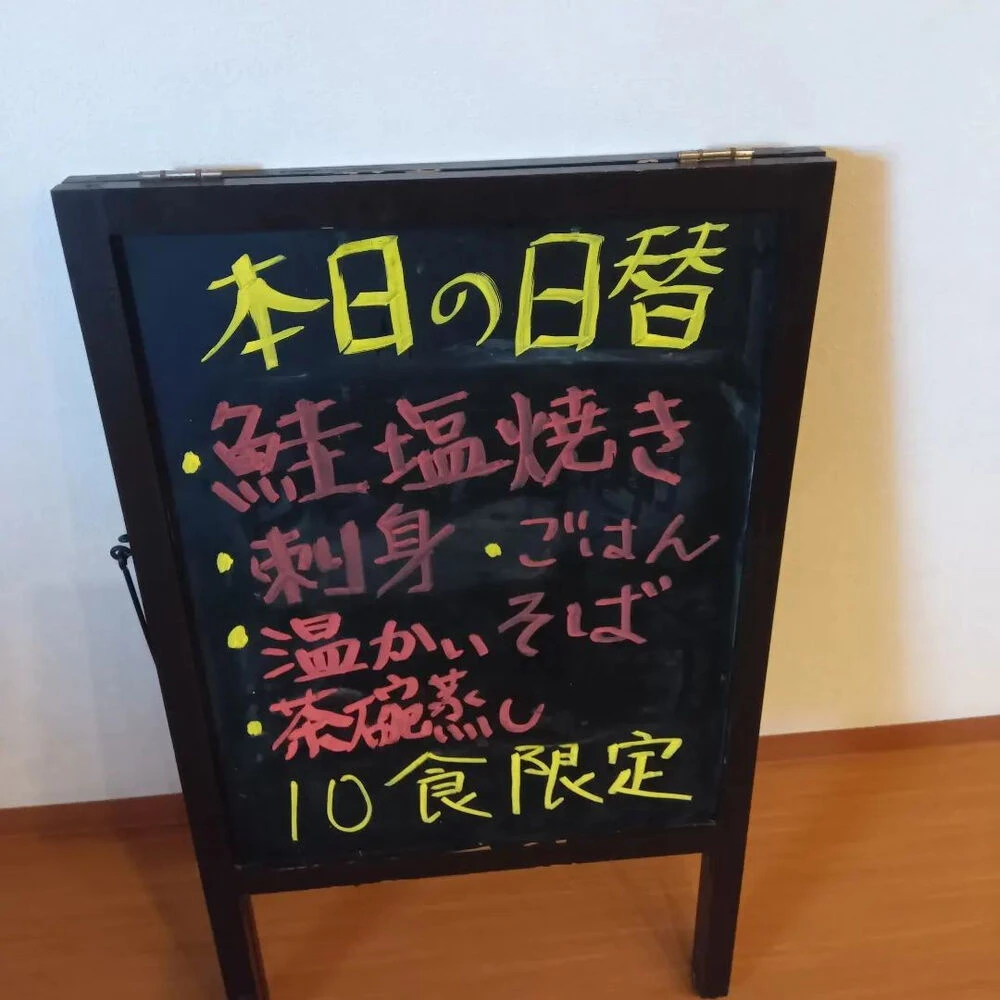 本日の日替
・鮭塩焼き
・刺身 ・ごはん
・温かいそば
・茶碗蒸し
10食限定